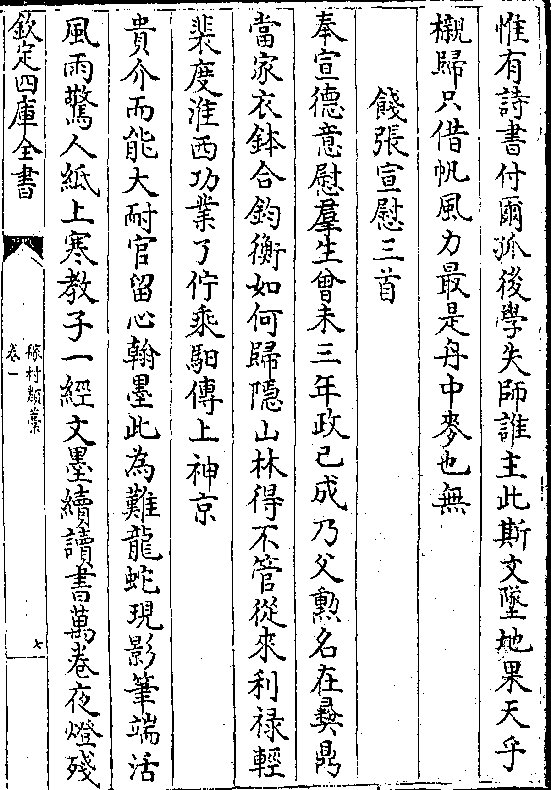 惟有詩書付爾孤後學失師誰主此斯文墜地果天乎
櫬歸只借帆風力最是舟中麥也無
餞張宣慰三首
奉宣德意慰羣生曾未三年政已成乃父勲名在彝鼎
當家衣鉢合鈞衡如何歸隱山林得不管從來利禄輕
裴度淮西功業了佇乘馹傳上神京
貴介而能大耐官留心翰墨此為難龍蛇現影筆端活
風雨驚人紙上寒教子一經文墨續讀書萬卷夜燈殘
欽定四庫全書
稼村類藁
卷一
七